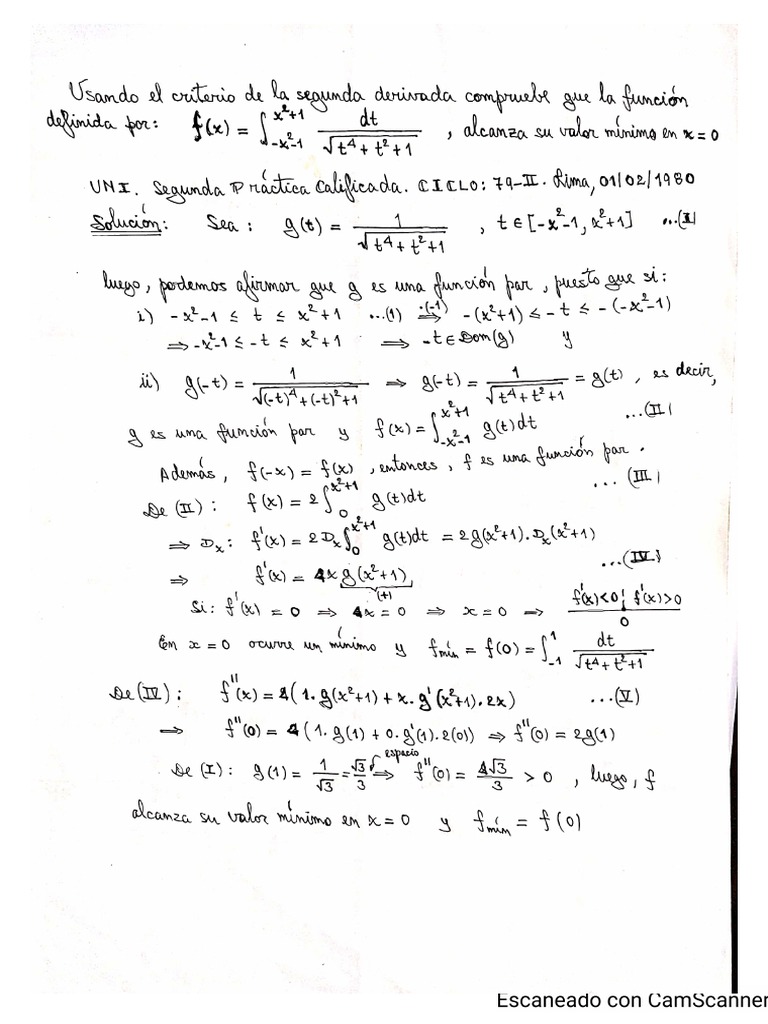 Usando el criterio de la segunda derivada compruebe que la función
definida por: f(x) = ∫_{-x²-1}^{x²+1} dt/√(t⁴+t²+1) , alcanza su valor mínimo en x=0
UNI. Segunda Práctica Calificada. CICLO: 79-II. Lima, 01/02/1980
Solución: Sea: g(t) = 1/√(t⁴+t²+1) , t∈[-x²-1, x²+1] ...(I)
luego, podemos afirmar que g es una función par, puesto que si:
i) -x²-1 ≤ t ≤ x²+1 ...(1) ⇒^{·(-1)} -(x²+1) ≤ -t ≤ -(-x²-1)
⇒ -x²-1 ≤ -t ≤ x²+1 ⇒ -t∈Dom(g) y
ii) g(-t) = 1/√((-t)⁴+(-t)²+1) ⇒ g(-t) = 1/√(t⁴+t²+1) = g(t) , es decir,
g es una función par y f(x) = ∫_{-x²-1}^{x²+1} g(t)dt ...(II)
Además, f(-x) = f(x) , entonces, f es una función par.
De (II): f(x) = 2∫_0^{x²+1} g(t)dt ...(III)
⇒ Dx: f'(x) = 2Dx∫_0^{x²+1} g(t)dt = 2g(x²+1).Dx(x²+1)
⇒ f'(x) = 4x g(x²+1) ...(IV)
(+)
Si: f'(x) = 0 ⇒ 4x = 0 ⇒ x = 0 ⇒ f'(x)<0 ¦ f'(x)>0
0
En x = 0 ocurre un mínimo y f_mín = f(0) = ∫_{-1}^{1} dt/√(t⁴+t²+1)
De (IV): f''(x) = 4(1.g(x²+1) + x.g'(x²+1).2x) ...(V)
⇒ f''(0) = 4(1.g(1) + 0.g'(1).2(0)) ⇒ f''(0) = 2g(1)
espacio
De (I): g(1) = 1/√3 = √3/3 ⇒ f''(0) = 4√3/3 > 0 , luego, f
alcanza su valor mínimo en x = 0 y f_mín = f(0)
Escaneado con CamScanner